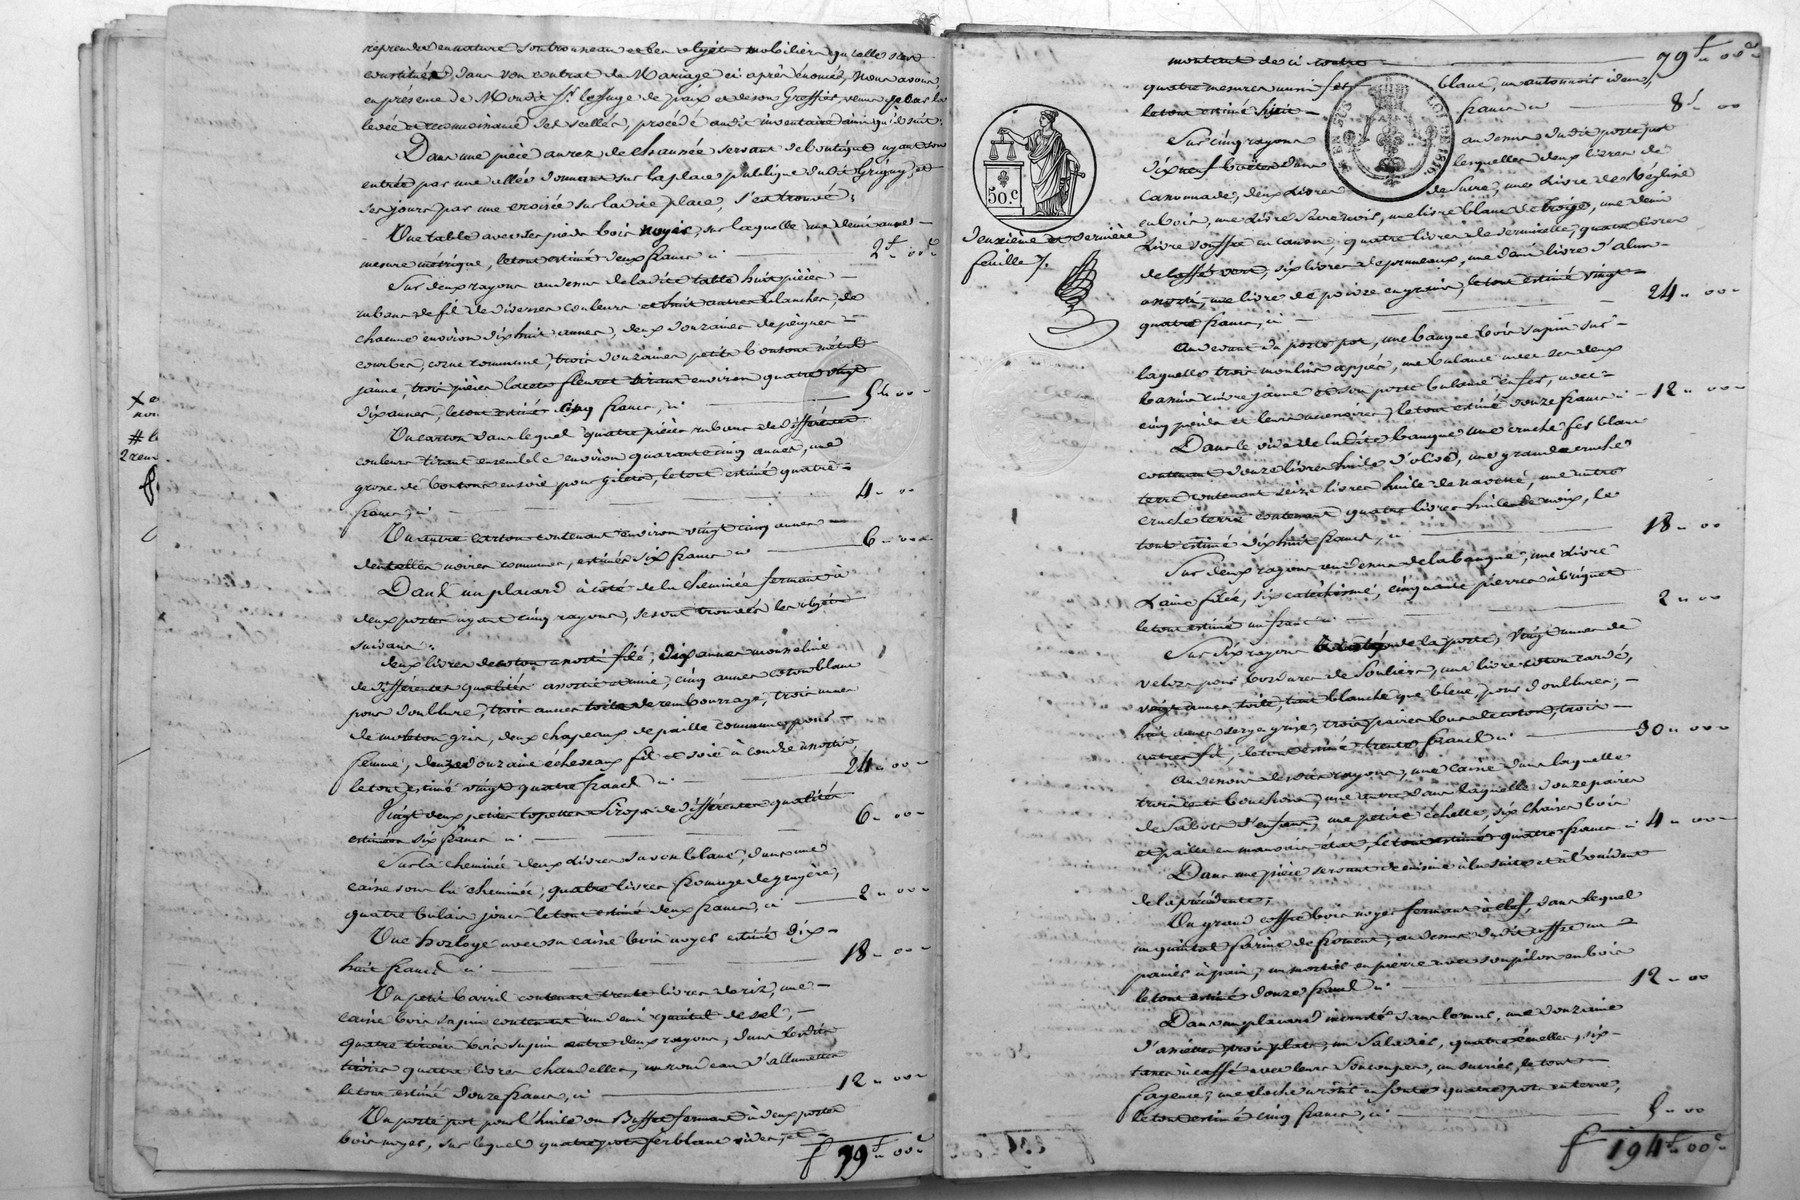 reprendre en nature son trousseau et les objets mobiliers qu'elle s'est
constituée, dans son contrat de Mariage ci après énoncé, nous avons,
en présence de Mondit Sr. le Juge de paix et de son Greffier, venus pour la
levée et reconnoissance des scellés, procédé audit inventaire ainsi qu'il suit:
Dans une pièce au rez de chaussée servant de boutique ayant son
entrée par une allée donnant sur la place publique dudit Grigny, et
ses jours par une croisée sur ladite place, s'est trouvé:
Une table avec ses pieds bois noyer, sur laquelle une demi aune
mesure métrique, le tout estimé deux francs ci 2f. 00c
Sur deux rayons au dessus de ladite table huit pièces
rubans de fil de diverses couleurs et huit autres blanches, de
chacune environ dix huit aunes, deux douzaines de peignes
courbes, corne commune, trois douzaines petits boutons métal
jaune, trois pièces lacets fleuret tirant environ quatre vingt
dix aunes, le tout estimé cinq francs, ci 5f. 00
Un carton dans lequel quatre pièces rubans de différentes
couleurs tirant ensemble environ quarante cinq aunes, une
grosse de boutons en soie pour gilets, le tout estimé quatre
francs, ci 4. 00
Un autre carton contenant environ vingt cinq aunes
dentelles noires communes, estimées six francs ci 6. 00
Dans un placard à côté de la cheminée fermant à
deux portes ayant cinq rayons, se sont trouvés les objets
suivans:
deux livres de coton assorti filé, dix aunes mousseline
de différentes qualités assortie et unie, cinq aunes coton blanc
pour doublure, trois aunes toile de rembourrage, trois aunes
de molleton gris, deux chapeaux de paille communs pour
femme, deux douzaine écheveaux fil et soie à coudre assortis
le tout estimé vingt quatre francs ci 24. 00
Vingt deux petites topettes Sirops de différentes qualités
estimées six francs ci 6. 00
Sur la cheminée deux livres savon blanc, dans une
caisse sous la cheminée, quatre livres fromage de gruyère,
quatre balais joncs le tout estimé deux francs, ci 2. 00
Une horloge avec sa caisse bois noyer estimé dix
huit francs ci 18. 00
Un petit barril contenant trente livres de riz, une
caisse bois sapin contenant un demi quintal de sel,
quatre tiroirs bois sapin entre deux rayons, dans lesdits
tiroirs quatre livres chandelles, d'allumettes
le tout estimé douze francs, ci 12. 00
Un porte pot pour l'huile ou Buffet fermant à deux portes
bois noyer, sur lequel quatre pots ferblanc vides, et
f 79f. 00c
montant de ci contre 79f 00c
quatre mesures aussi fer blanc, un entonnoir idem,
le tout estimé huit francs ci 8f. 00
Sur cinq rayons au dessus dudit porte pot
dix neuf boîtes dans lesquelles deux livres de
Cassonnade, deux livres de sucre, une livre de réglise
en bois, une livre une livre blanc de troyes, une demi
livre souffre en canon, quatre livres de vermicelle, quatre livres
de caffé vert, six livres de pruneaux, une demi livre d'alun
assorti, une livre de poivre en grains, le tout estimé vingt
quatre francs, ci 24. 00
deuxième et dernière
feuille /.
50.c
EN SUS LOI DE 1816
Au devant du porte pot, une banque bois sapin sur
laquelle trois moulins à caffé, une balance avec ses deux
bassins cuivre jaune et son porte balance en fer, avec
cinq poids et leurs accessoires, le tout estimé douze francs ci 12. 00
Dans le vide de ladite banque une cruche fer blanc
contenant douze livres huile d'olive, une grande cruche
terre contenant seize livres huile de navette, une autre
cruche terre contenant quatre livres huile de noix, le
tout estimé dix huit francs, ci 18. 00
Sur deux rayons au dessus de la banque, une livre
Laine filée, six catéchisme, cinquante pierres à briquet
le tout estimé un franc ci 2. 00
Sur six rayons de la porte, vingt aunes de
velours pour bordures de Souliers, une livre coton cardé,
vingt aunes toile, tant blanche que bleue, pour doublures,
huit aunes serge grise, trois paires bas de coton, trois
autres fil, le tout estimé trente francs ci 30. 00
Au dessous desdits rayons, une caisse dans laquelle
trois cents bouchons, une autre dans laquelle douze paires
de Sabots d'enfans, une petite échelle, six chaises bois
et paille en mauvais état, le tout estimé quatre francs ci 4. 00
Dans une pièce servant de cuisine à la suite et à l'occident
de la précédente,
Un grand coffre bois noyer fermant à clef, dans lequel
un quintal farine de froment, au dessus dudit coffre un
panier à pain, un mortier en pierre avec son pilon en bois
le tout estimé douze francs ci 12. 00
Dans un placard incrusté dans le mur, une douzaine
d'assiettes, trois plats, un Saladier, quatre écuelles, six
tasses à caffé avec leurs soucoupes, un sucrier, le tout
fayence, une cloche à rôtir en fonte quatre pots en terre,
le tout estimé cinq francs, ci 5. 00
f 194f. 00c